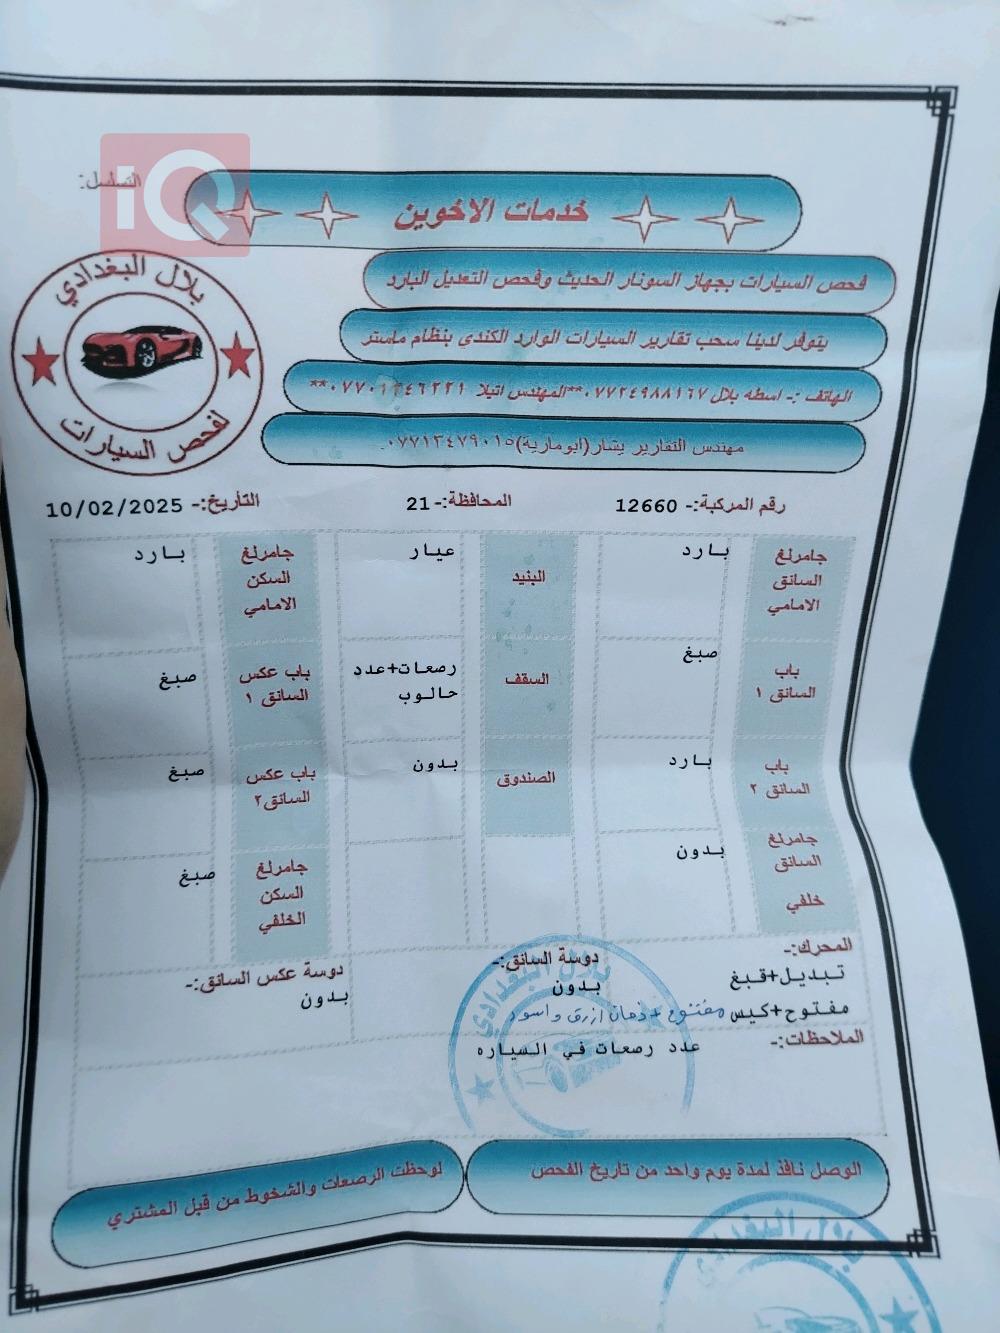 iQ
التسلسل:
خدمات الاخوين
بلال البغدادي
لفحص السيارات
فحص السيارات بجهاز السونار الحديث وفحص التعديل البارد
يتوفر لدينا سحب تقارير السيارات الوارد الكندي بنظام ماستر
الهاتف :- اسطه بلال ٠٧٧٢٤٩٨٨١٦٧**المهندس اتيلا ٠٧٧٠١٢٤٦٢٢١**
مهندس التقارير بشار(ابومارية)٠٧٧١٢٤٧٩٠١٥.
رقم المركبة:- 12660 المحافظة:- 21 التأريخ:- 10/02/2025
جاملرغ السائق الامامي بارد البنيد عيار جاملرغ السكن الامامي بارد
باب السائق ١ صبغ السقف رصعات+عدد حالوب باب عكس السائق ١ صبغ
باب السائق ٢ بارد الصندوق بدون باب عكس السائق٢ صبغ
جاملرغ السائق خلفي بدون جاملرغ السكن الخلفي صبغ
المحرك:- تبديل+قبغ مفتوح+كيس مفتوح + دخان ازرق واسود
دوسة السائق:- بدون
دوسة عكس السائق:- بدون
الملاحظات:- عدد رصعات في السياره
بلال البغدادي
الوصل نافذ لمدة يوم واحد من تاريخ الفحص
لوحظت الرصعات والشخوط من قبل المشتري
بلال البغدادي